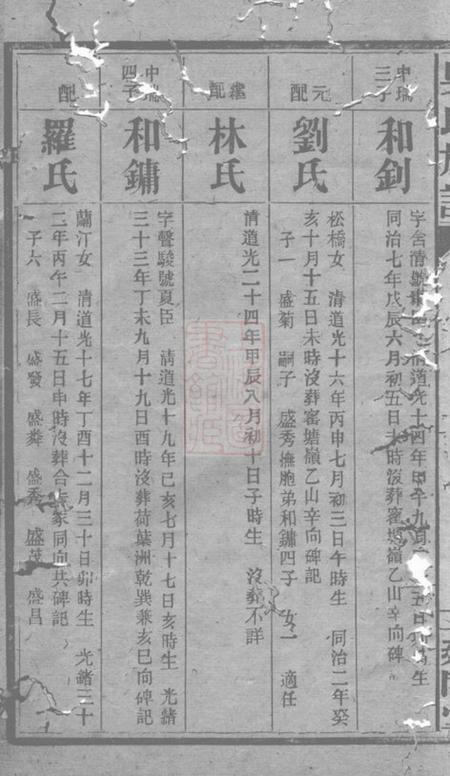 吳氏族譜
中瑞三子
和釗
字含清號
清道光十四年甲午九月
五日
時生
同治七年戊辰六月初五日未時沒葬窰塘嶺乙山辛向碑
元配
劉氏
松橋女 清道光十六年丙申七月初三日午時生 同治二年癸
亥十月十五日未時沒葬窰塘嶺乙山辛向碑記
子一 盛菊 嗣子 盛秀撫胞弟和鏞四子 女一 適任
繼配
林氏
清道光二十四年甲辰八月初十日子時生 沒葬不詳
中瑞四子
和鏞
字聲駿號夏臣 清道光十九年己亥七月十七日亥時生 光緒
三十三年丁未九月十九日酉時沒葬荷葉洲乾巽兼亥巳向碑記
配
羅氏
蘭汀女 清道光十七年丁酉十二月三十日卯時生 光緒三十
二年丙午二月十五日申時沒葬合
家同向共碑記
子六 盛長 盛發 盛粦 盛秀 盛茂 盛昌